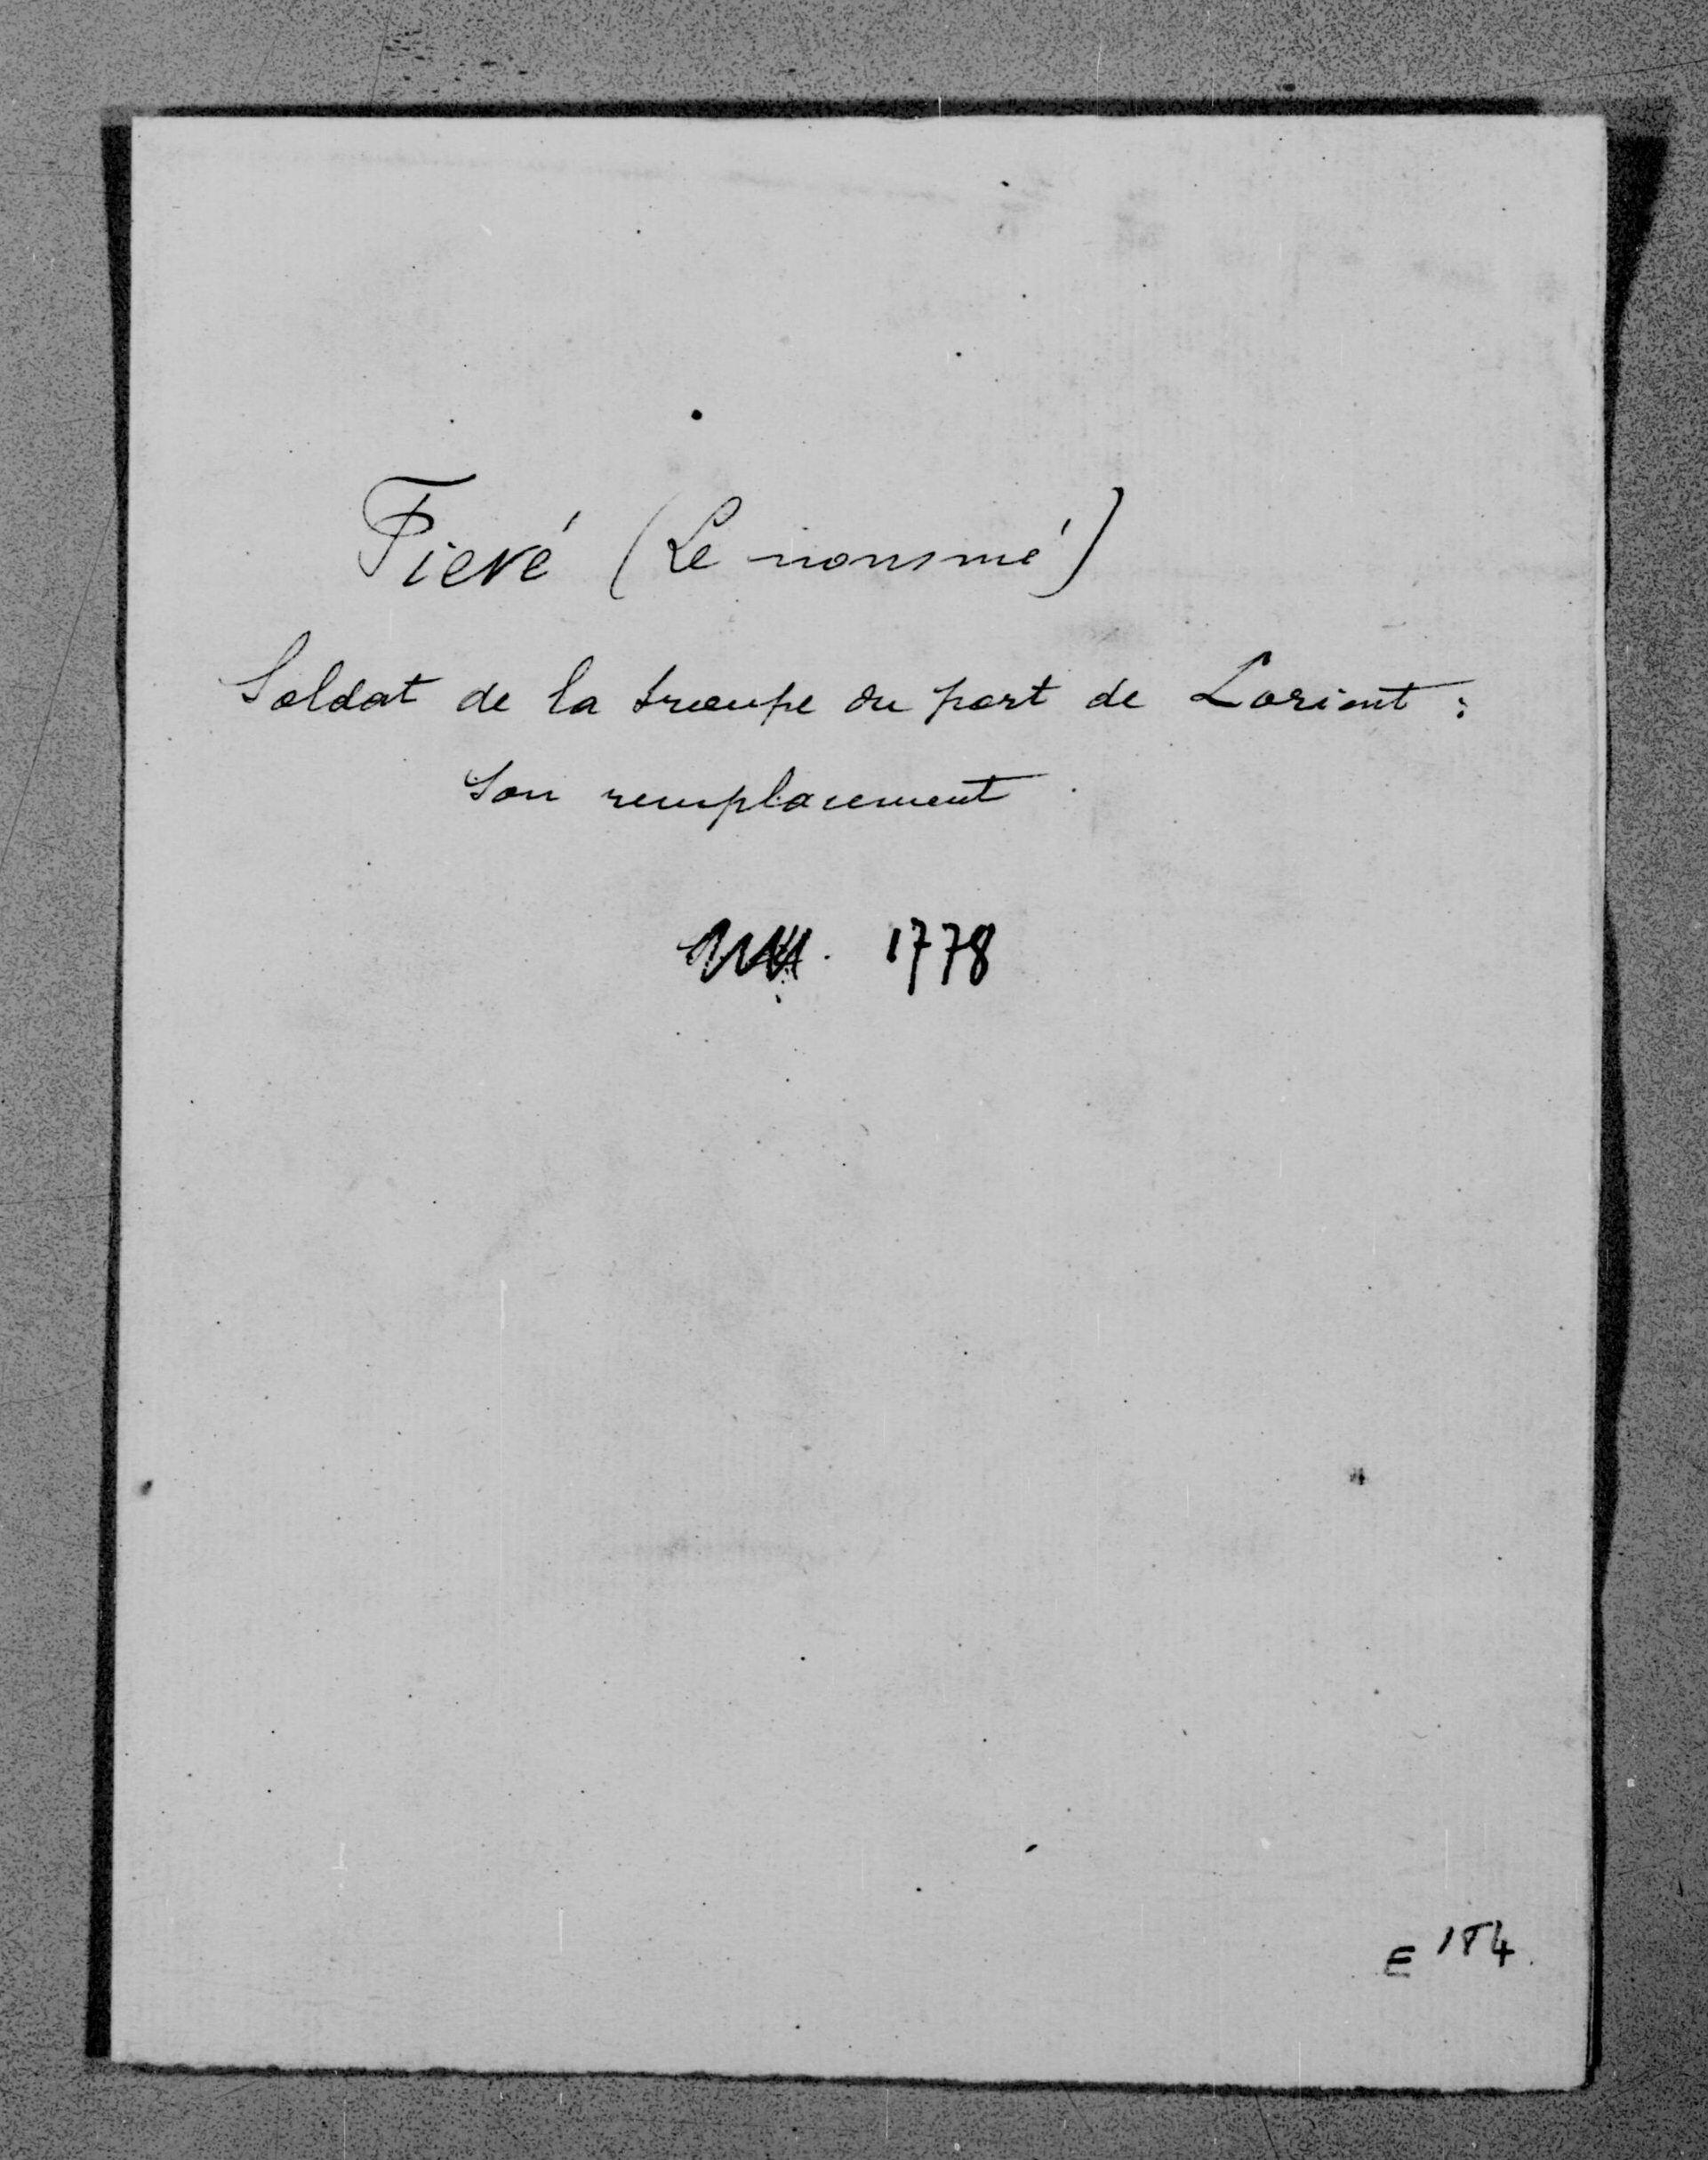 Fievé (Le nommé)
Soldat de la troupe du port de Lorient :
Son remplacement
1778
E 184